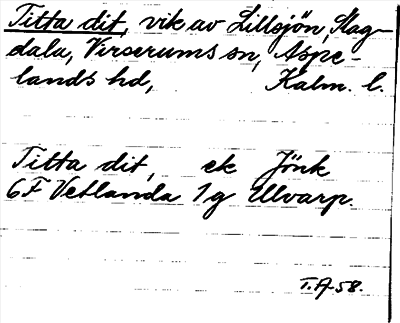 Titta dit, vik av Lillsjön, Slag-
dala, Virserums sn, Aspe-
lands hd, Kalm. l.
Titta dit, ek Jönk
6F Vetlanda 1g Ulvarp.
T.A-58.